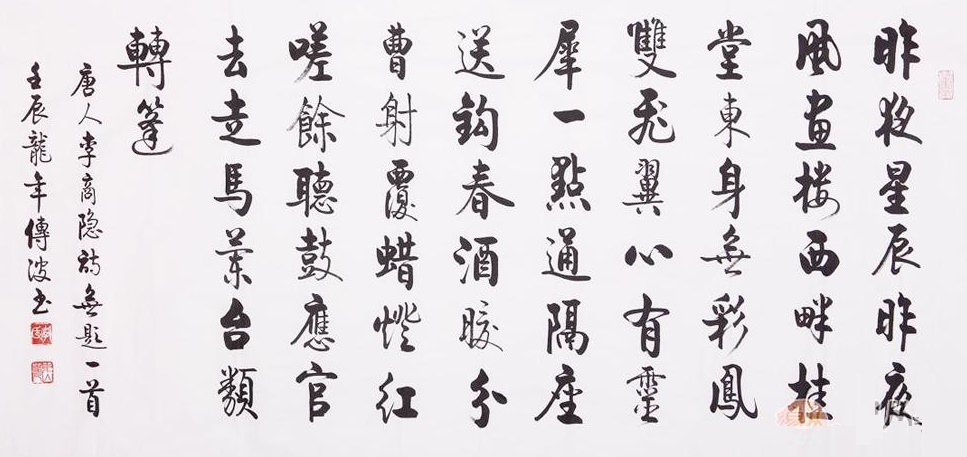 昨夜星辰昨夜
風畫楼西畔桂
堂東身無彩鳳
雙飛翼心有靈
犀一點通隔座
送鈎春酒暖分
曹射覆蜡燈紅
嗟餘聽鼓應官
去走馬蘭台類
轉蓬
唐人李商隐詩無題一首
壬辰龍年傳波书